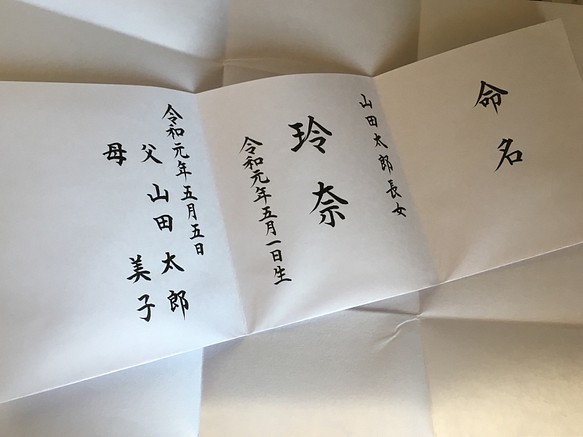 命名
山田太郎長女
玲奈
令和元年五月一日生
令和元年五月五日
父 山田太郎
母 美子